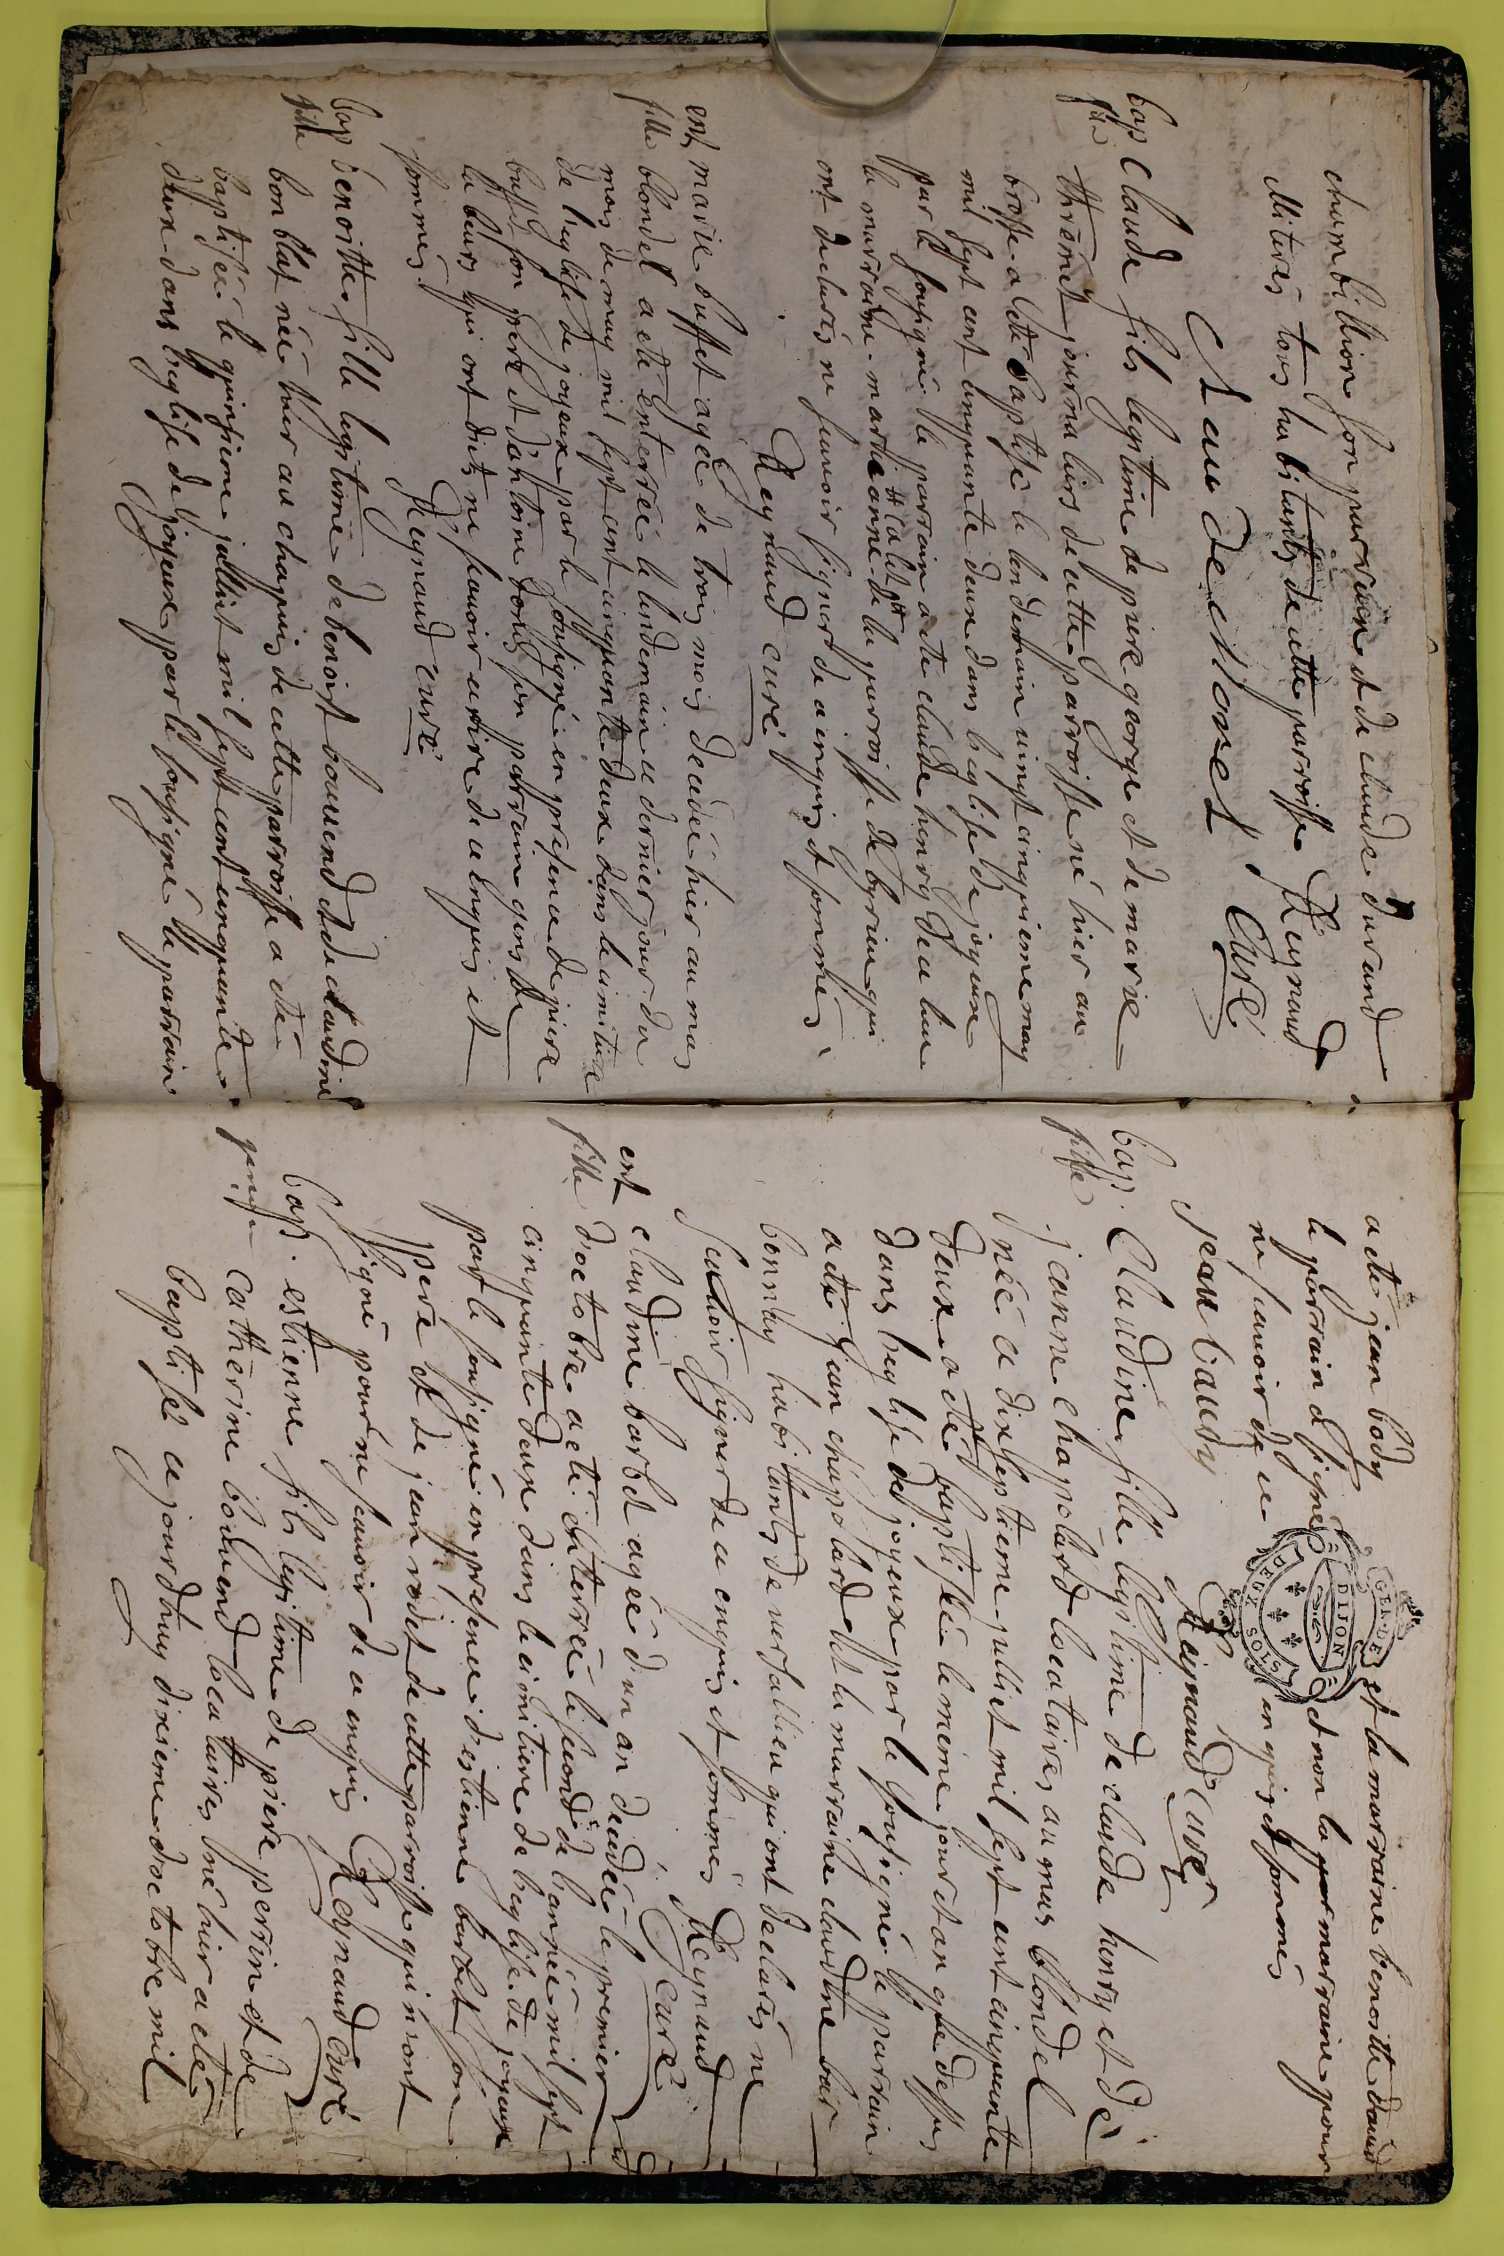 chambillion son parrein et de claude durand
Militeres tous habitants de cette parroisse Reynaud
J Lau de Monet Curé
bap
fils
claude fils legitime de piere george et de marie
thromet journaliers de cette parroisse né hier au
brosse a eté baptisé le lendemain vingt cinquieme may
mil sept cent cinquante deux dans leglise de joyeux
par le sousigné le parrain a ete claude henry de ce lieu
la marraine marie anne de la parroisse de byrieu qui
ont declarés ne scavoir signer de ce enquis et sommés
Reynaud curé
ent
fille
marie buffet agée de trois mois decedée hier au mas
blondel a eté enterrée le lindemain ce dernier jour du
mois de may mil sept cent cinquante deux dans le cimitiere
de leglise de joyeux par le sousigné en presence de piere
buffet son pere et dantoine son parrain gens de
labeurs qui ont dits ne scavoir ecrire de ce enquis et
sommés
Reynaud curé
bap
fille
benoitte fille legitime de benoist bouuend et de claudine
bonblat née hier au chapuis de cette parroisse a eté
baptisée le quinsieme julliet mil sept cent cinquante
deux dans leglise de joyeux par le sousigné le parrain
a eté jean body et la marraine benoitte daud
le parrain a signé et non la par marraine pour
ne scavoir de ce en quis et sommés
GEN DE
DIJON
DEUX SOLS
jean baudy Reynaud curé
bap.
fille
Claudine fille legitime de claude henry et de
jeanne chapolard locataires au mas blondel
née ce dixseptieme julliet mil sept cent cinquante
deux a eté baptisée le meme jour et an que dessus
dans leglise de joyeux par le sousigné le parrain
a eté jean chapolard et la marraine claudine bar
bonnay habitants de versallieu qui ont declarés ne
scavoir signer de ce enquis et sommés Reynaud
curé
ent
fille
claudine barbet agée d'un an decedée le premier
d'octobre a eté enterrée le second de lannée mil sept
cinquante deux dans le cimitiere de leglise de joyeux
par le sousigné en presence destienne barbet son
pere et de jean rodet de cette parroisse qui n'ont
signé pour ne scavoir de ce enquis Reynaud curé
bap.
estienne fils legitime de piere perrin et de
catherine bouuend locataires né hier a eté
baptisé ce jourdhuy dixieme d'octobre mil